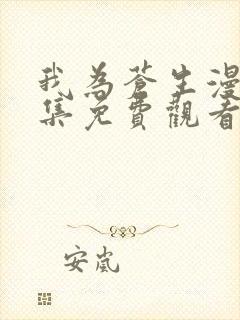 我為蒼生漫
集免費觀看
安嵐